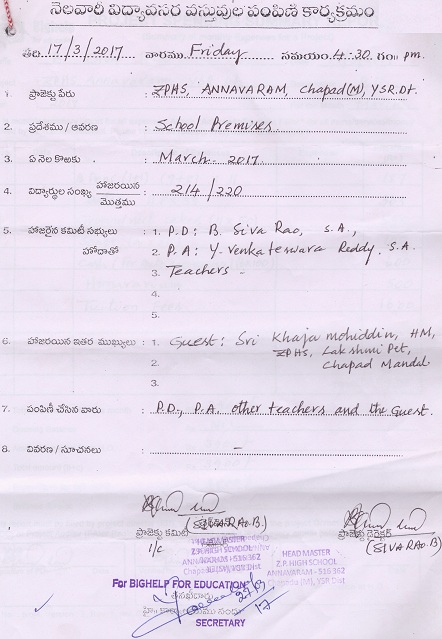 నెలవారీ విద్యావసర వస్తువుల పంపిణి కార్యక్రమం
తేది 17/3/2017 వారము Friday సమయం 4.30 గం॥ pm.
1. ప్రాజెక్టు పేరు : ZPHS, ANNAVARAM, Chapad(M), YSR.Dt.
2. ప్రదేశము / ఆవరణ : School Premises.
3. ఏ నెల కొఱకు : March. 2017
4. విద్యార్థుల సంఖ్య హాజరయిన / మొత్తము : 214/220
5. హాజరైన కమిటీ సభ్యులు : 1. P.D: B. Siva Rao, S.A.,
హోదాతో 2. P.A: Y. Venkateswara Reddy. S.A.
3. Teachers -
4.
5.
6. హాజరయిన ఇతర ముఖ్యులు : 1. Guest: Sri Khaja mohiddin, HM,
2. ZPHS, Lakshmi Pet,
Chapad Mandal
3.
7. పంపిణీ చేసిన వారు : P.D., P.A. other teachers and the Guest.
8. వివరణ / సూచనలు : -
(SIVA RAO.B.)
ప్రాజెక్టు కమిటీ
I/C
ప్రాజెక్టు డైరెక్టర్
(SIVA RAO.B)
HEAD MASTER
Z.P. HIGH SCHOOL
ANNAVARAM - 516 362
Chapadu (M), YSR Dist
HEAD MASTER
Z.P. HIGH SCHOOL
ANNAVARAM - 516 362
Chapadu (M), YSR Dist
For BIGHELP FOR EDUCATION
SECRETARY